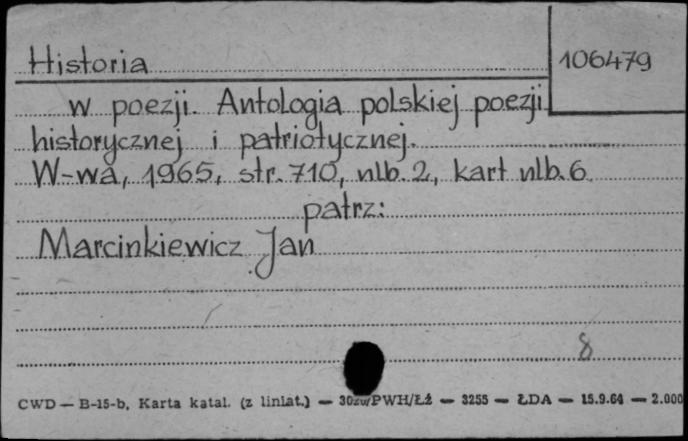 Historia
106479
w poezji. Antologia polskiej poezji
historycznej i patriotycznej.
W-wa, 1965, str. 710, nlb. 2, kart nlb. 6
patrz:
Marcinkiewicz Jan
8
CWD — B-15-b, Karta katal. (z liniat.) — PWH/Łź — 3255 — ŁDA — 15.9.64 — 2.000